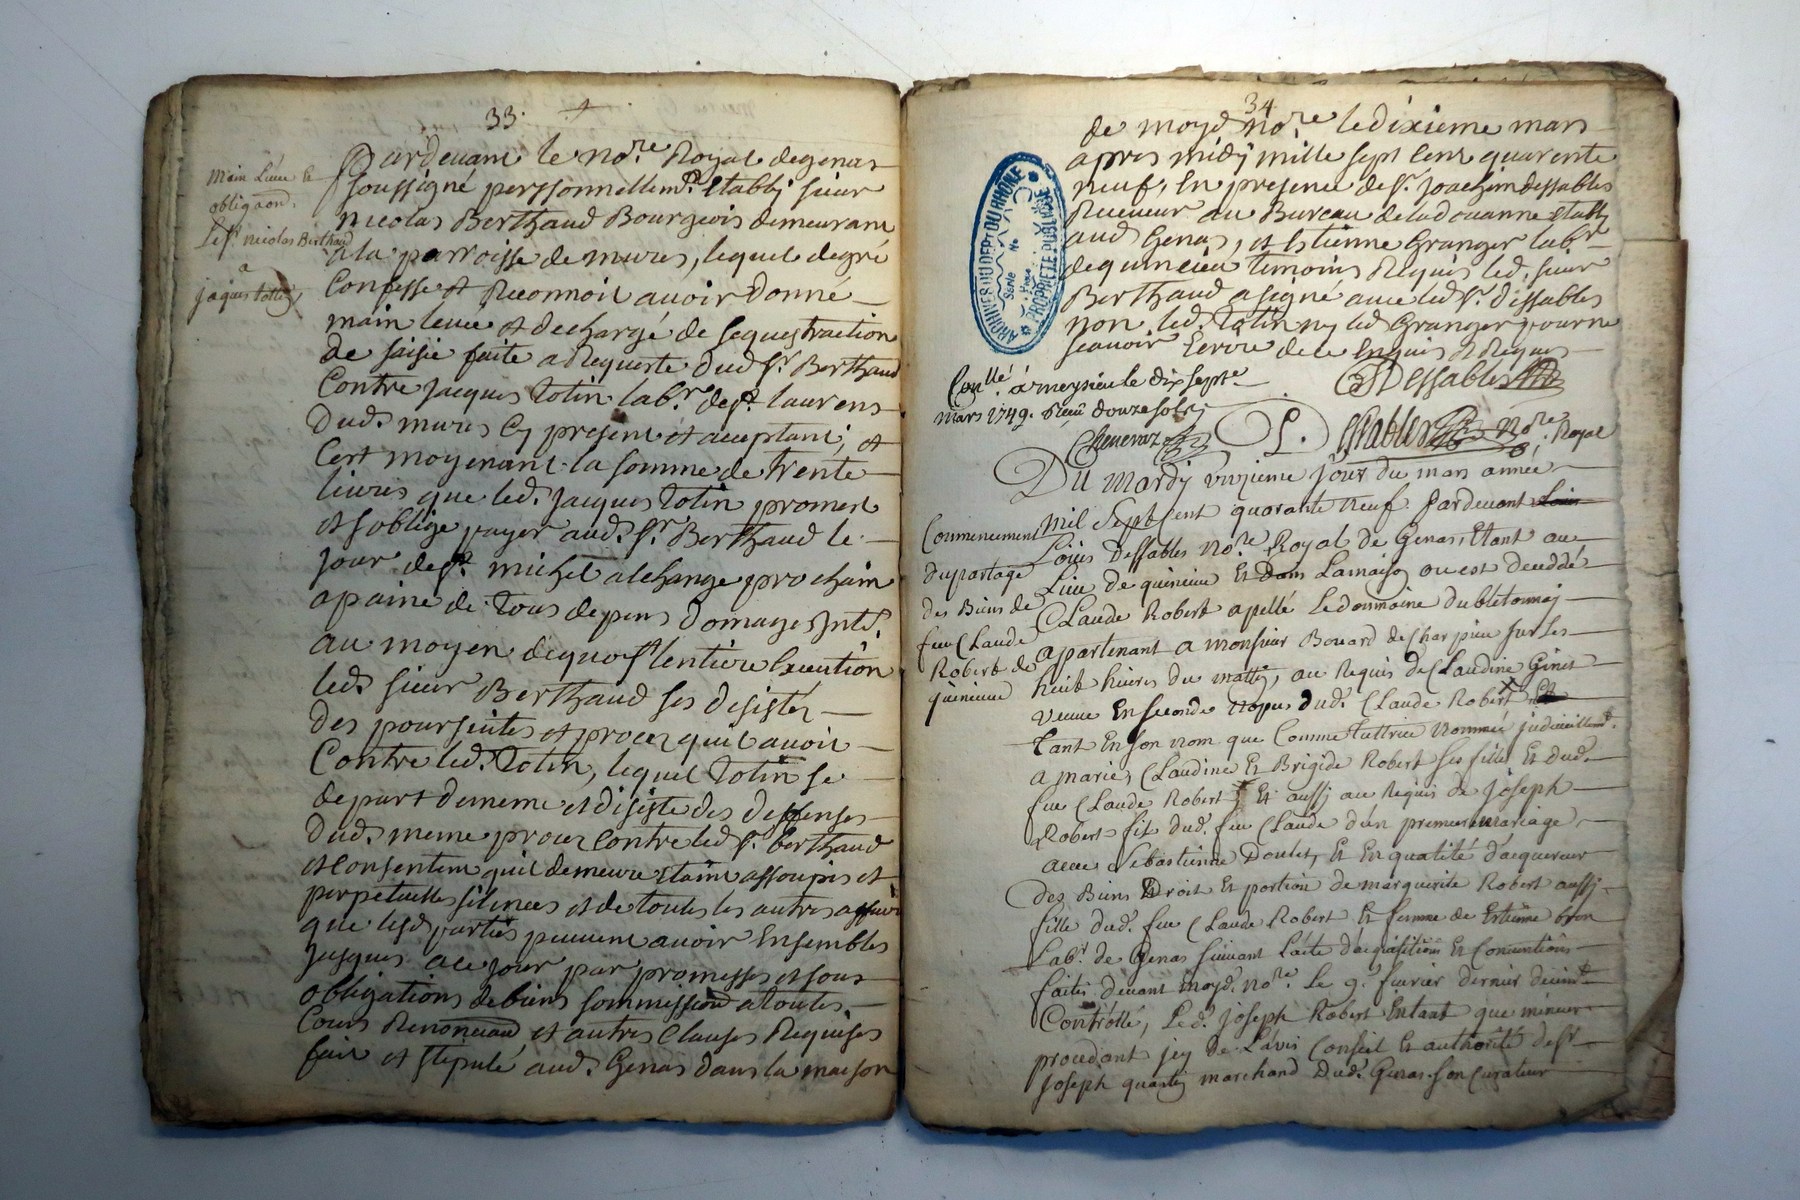 33.
main Levée et
obliga͞on.
Le sr nicolas Berthaud
a
jaques totin
Pardevant le nore. Royal de genas
soussigné perssonnellemt. Etably sieur
nicolas Berthaud Bourgeois demeurant
a la parroisse de mures, lequel de gré
Confesse et Reconnoit avoir donné
main levée et dechargé de sequestraction
de saisie faite a Requeste dud sr. Berthaud
Contre jacques totin labr. de st. laurens
dud. mures Cy present et acceptant, et
Cest moyenant la somme de trente
livres que led. jacques totin promet
et soblige payer aud. sr. Berthaud le
jour de st. michel alchange prochain
a paine de tous depens domages intt.
au moyen dequoy lentiere Execution
led. sieur Berthaud ses desisté
des poursuites et procez quil avoit
Contre led. totin, lequel totin se
depart dememe et desiste des deffenses
dud. meme procez contre led sr. berthaud
et consentent quil demeure Etaint assoupis et
perpetuelles silences et de toutes les autres affaires
que lesd parties peuvent avoir Ensembles
jusques a ce jour par promesses et sous
obligations de biens sommissions a toutes
Cours Renonciaon et autres Clauses Requises
fait et stipulé aud. Genas dans la maison
34
de moyd nore. le dixieme mars
apres midy mille sept Cent quarente
neuf, En presence de sr. joachim dessables
Receveur au Bureau de la douanne etably
aud Genas, et Estienne Granger labr.
de quincieu temoins Requis led. sieur
Berthaud a signé avec led sr. dessables
non led. totin ny led Granger pour ne
scavoir Ecrire de ce Enquis et Requis
Dessables
Conllé. à meysieu le dix sept
mars 1749. Reçu douze sols
Cheneraz
L. Essables nore. Royal
Du mardy onzieme jour du mars année
mil Sept Cent quarante neuf pardevant Louis
Commencement
du partage
des Biens de
feu Claude
Robert de
quincieux
Loüis Dessables nore. Royal de Genas, Etant au
Lieu de quincieu Et Dans Lamaison ou est deceddé
Claude Robert apellé Ledommaine du bletonnay
apartenant a monsieur Bouard de Charpieu sur les
huit heures du mattin, au Requis de Claudine Ginet
veuve En seconde nopces dud. Claude Robert Et
tant En son nom que Comme tuttrice nommée judiciellemt.
a marie, Claudine Et Brigide Robert ses filles Et dud.
feu Claude Robert, Et aussy au Requis de joseph
Robert fils dud. feu Claude d'un premier mariage
avec Sebastienne Doulet, Et En qualité dacquereur
des Biens Droit Et portion de marguerite Robert aussy
fille dud. feu Claude Robert Et femme de Estienne
Labr. de Genas suivant Lacte dacquisitions Et Conventions
faites devant moyd. nore. Le 9e. fevrier dernier
Controllé, Led. joseph Robert Entant que mineur
procedant jcy de Lavis Conseil Et authorité de sr.
joseph quantin marchand dud. Genas son Curateur
ARCHIVES DU DEPT DU RHONE
Série
No
Pièce
PROPRIETE PUBLIQUE